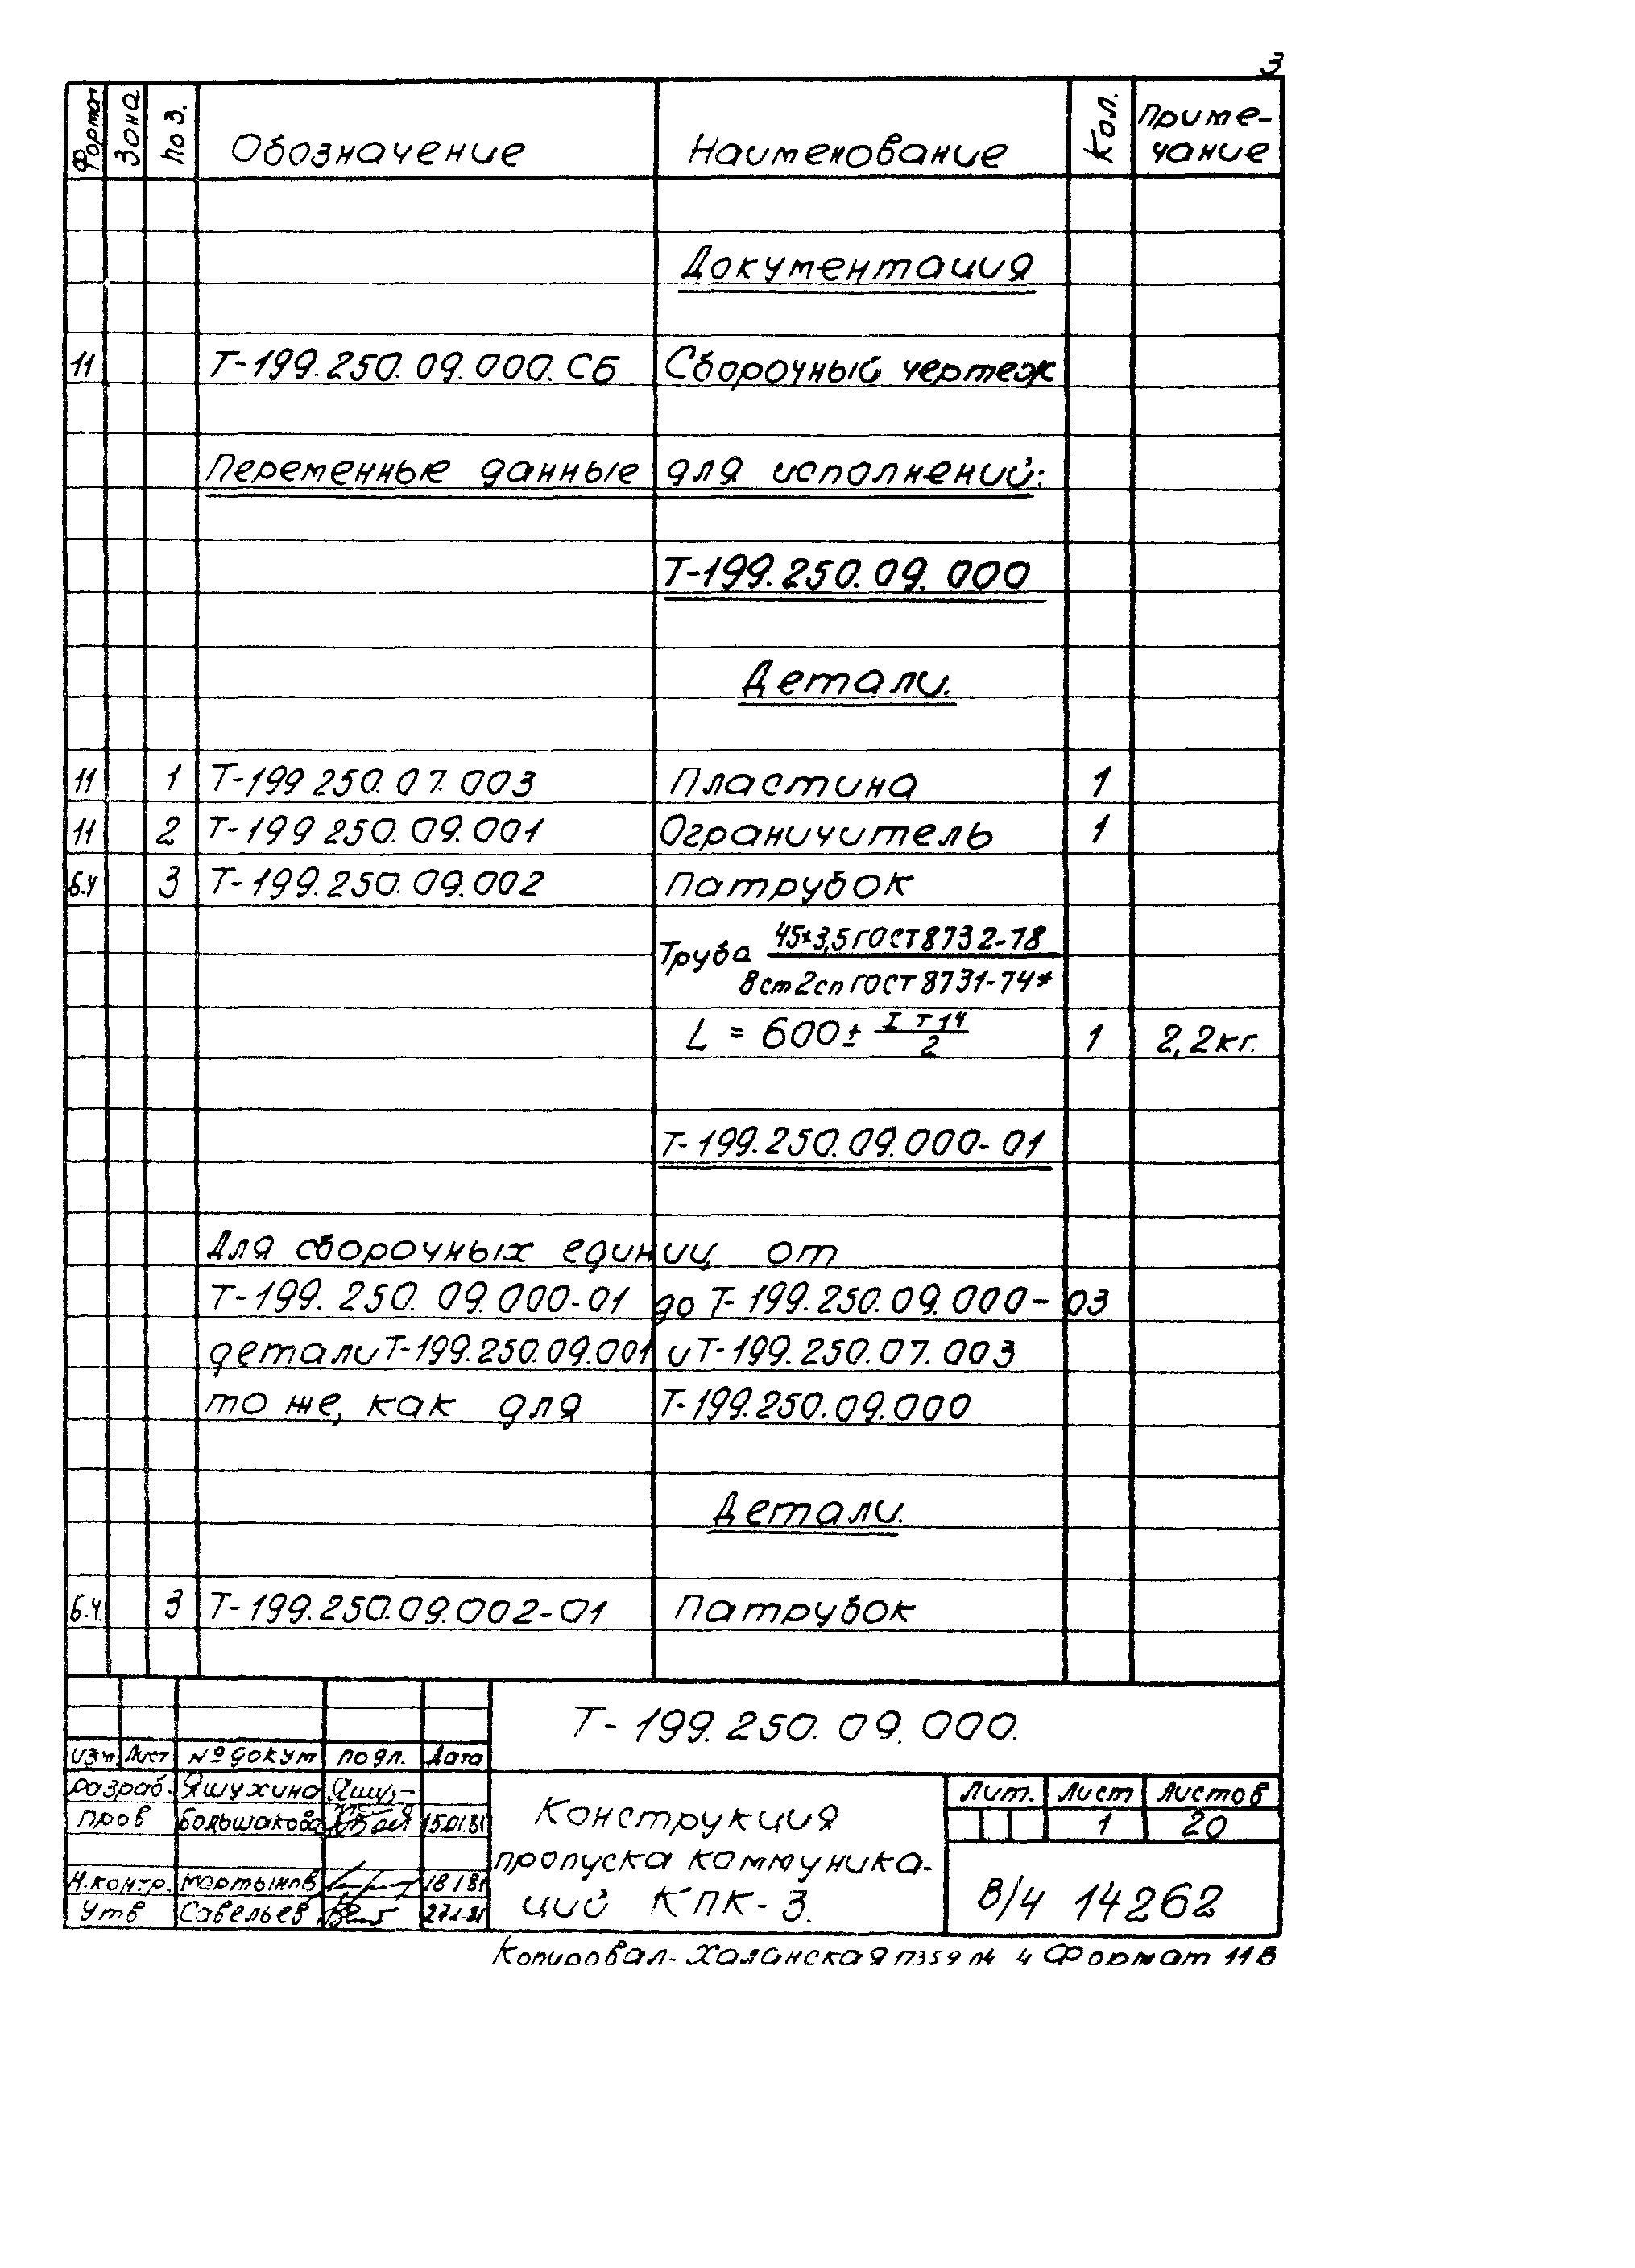 3
Формат Зона Поз. Обозначение Наименование Кол. Приме-
чание
Документация
11 Т-199.250.09.000.СБ Сборочный чертеж
Переменные данные для исполнений:
Т-199.250.09.000
Детали.
11 1 Т-199 250.07.003 Пластина 1
11 2 Т-199 250.09.001 Ограничитель 1
б.ч 3 Т-199.250.09.002 Патрубок
45×3,5 ГОСТ 8732-78
Труба
Вст2сп ГОСТ 8731-74*
L = 600 ± IT14/2 1 2,2кг.
Т-199.250.09.000-01
Для сборочных единиц от
Т-199.250.09.000-01 до Т-199.250.09.000-03
детали Т-199.250.09.001 и Т-199.250.07.003
то же, как для Т-199.250.09.000
Детали.
б.ч. 3 Т-199.250.09.002-01 Патрубок
Т-199.250.09.000.
Изм. Лист № докум подп. Дата
разраб. Яшухина
пров Большакова 15.01.81
Н.контр. Мартынов 18.1.81
Утв Савельев 27.1.81
Конструкция
пропуска коммуника-
ций КПК-3.
Лит. Лист Листов
1 20
В/ч 14262
Копировал- Халанская 4 Формат 11В